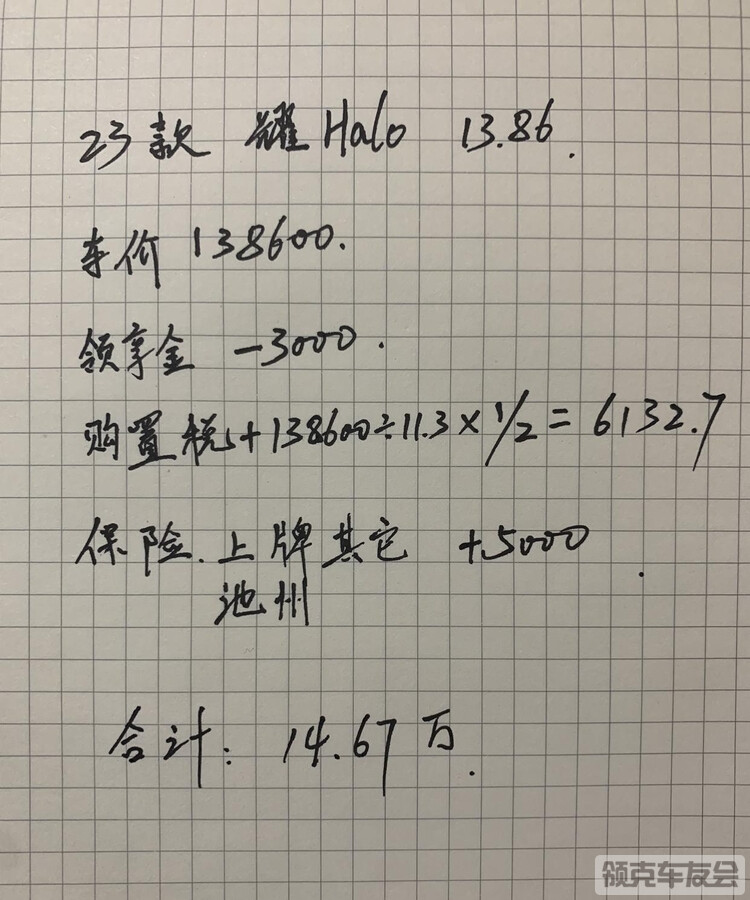 23款 耀Halo 13.86.
车价 138600.
领享金 -3000.
购置税+138600÷11.3×1/2=6132.7
保险.上牌其它 +5000.
池州
合计: 14.67万.
领克车友会